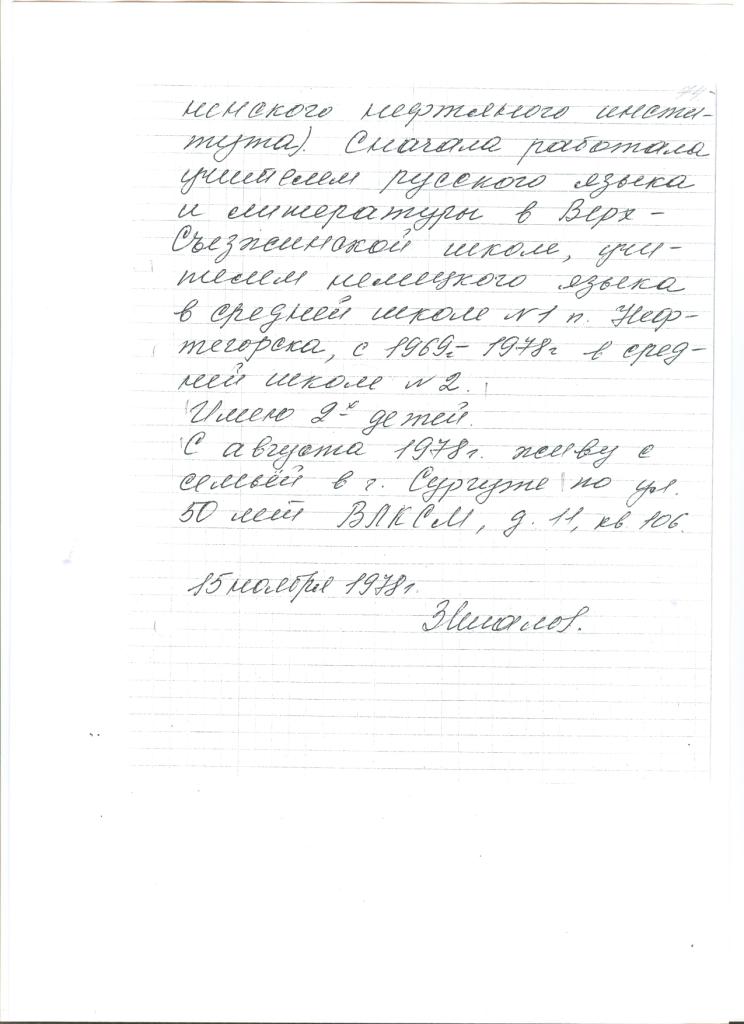 ненского нефтяного инсти-
тута). Сначала работала
учителем русского языка
и литературы в Верх-
Съезжинской школе, учи-
телем немецкого языка
в средней школе №1 п. Неф-
тегорска, с 1969г.- 1978г в сред-
ней школе №2.
Имею 2-х детей.
С августа 1978г. живу с
семьёй в г. Сургуте по ул.
50 лет ВЛКСМ, д. 11, кв 106.
15 ноября 1978г.